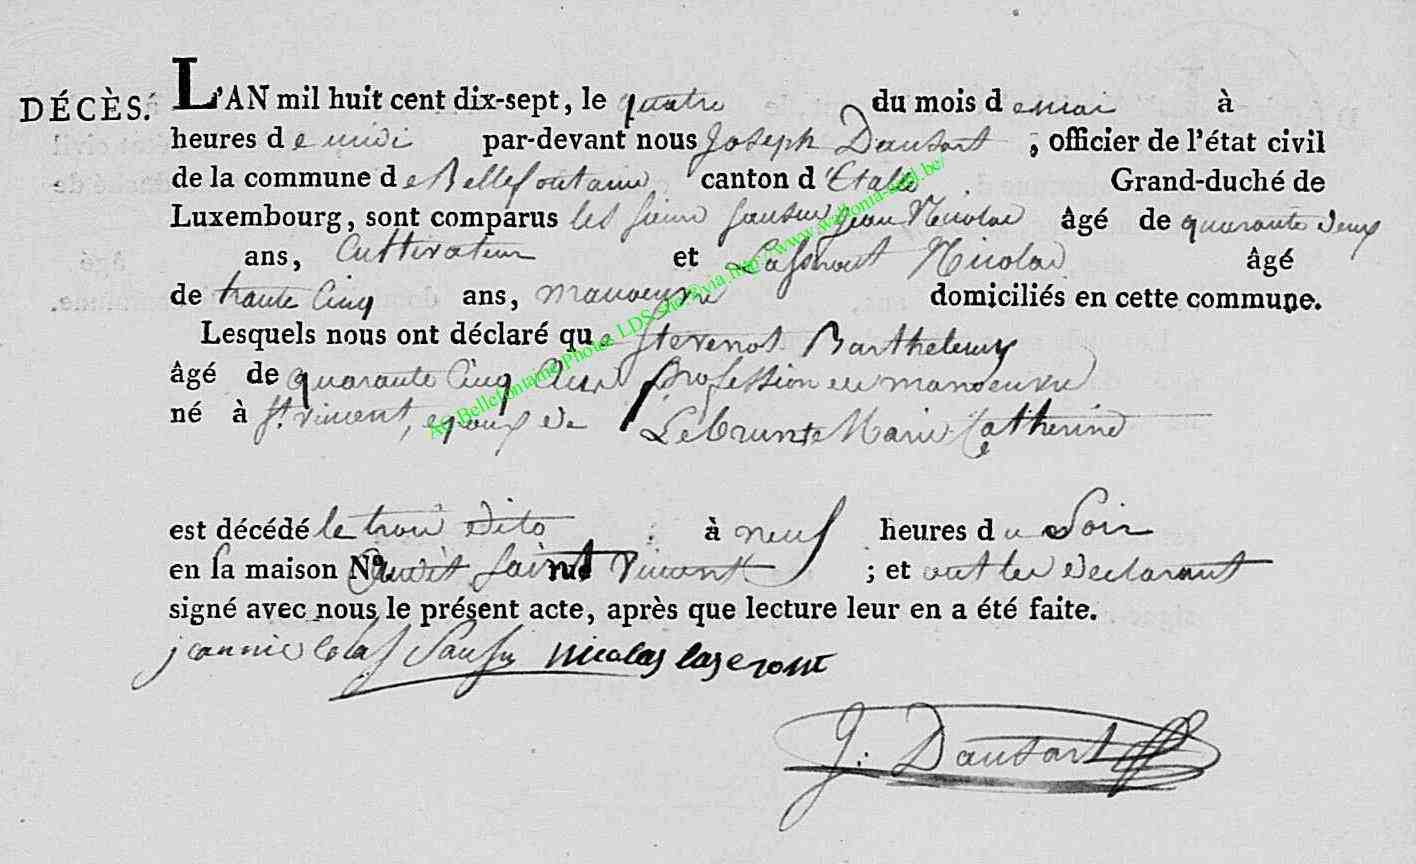 DÉCÈS. L'AN mil huit cent dix-sept, le quatre du mois de mai à
heures de midi par-devant nous Joseph Dausart ; officier de l'état civil
de la commune de Bellefontaine canton d'Etalle . Grand-duché de
Luxembourg, sont comparus les sieurs Jean Nicolas âgé de quarante deux
ans, Cultivateur et Nicolas âgé
de trante Cinq ans, manoeuvre domiciliés en cette commune.
Lesquels nous ont déclaré que Stevenot Barthelemy
âgé de quarante Cinq ans profession de manoeuvre
né à St. Vincent, epoux de Lebrun Marie Catherine
est décédé le trois dito à neuf heures du Soir
en sa maison N° Saint Vincent ; et ont les declarant
signé avec nous le présent acte, après que lecture leur en a été faite.
jean nicolas nicolas
J. Dausart
AC Bellefontaine Photoz LDS via http://www.wallonia-asbl.be/